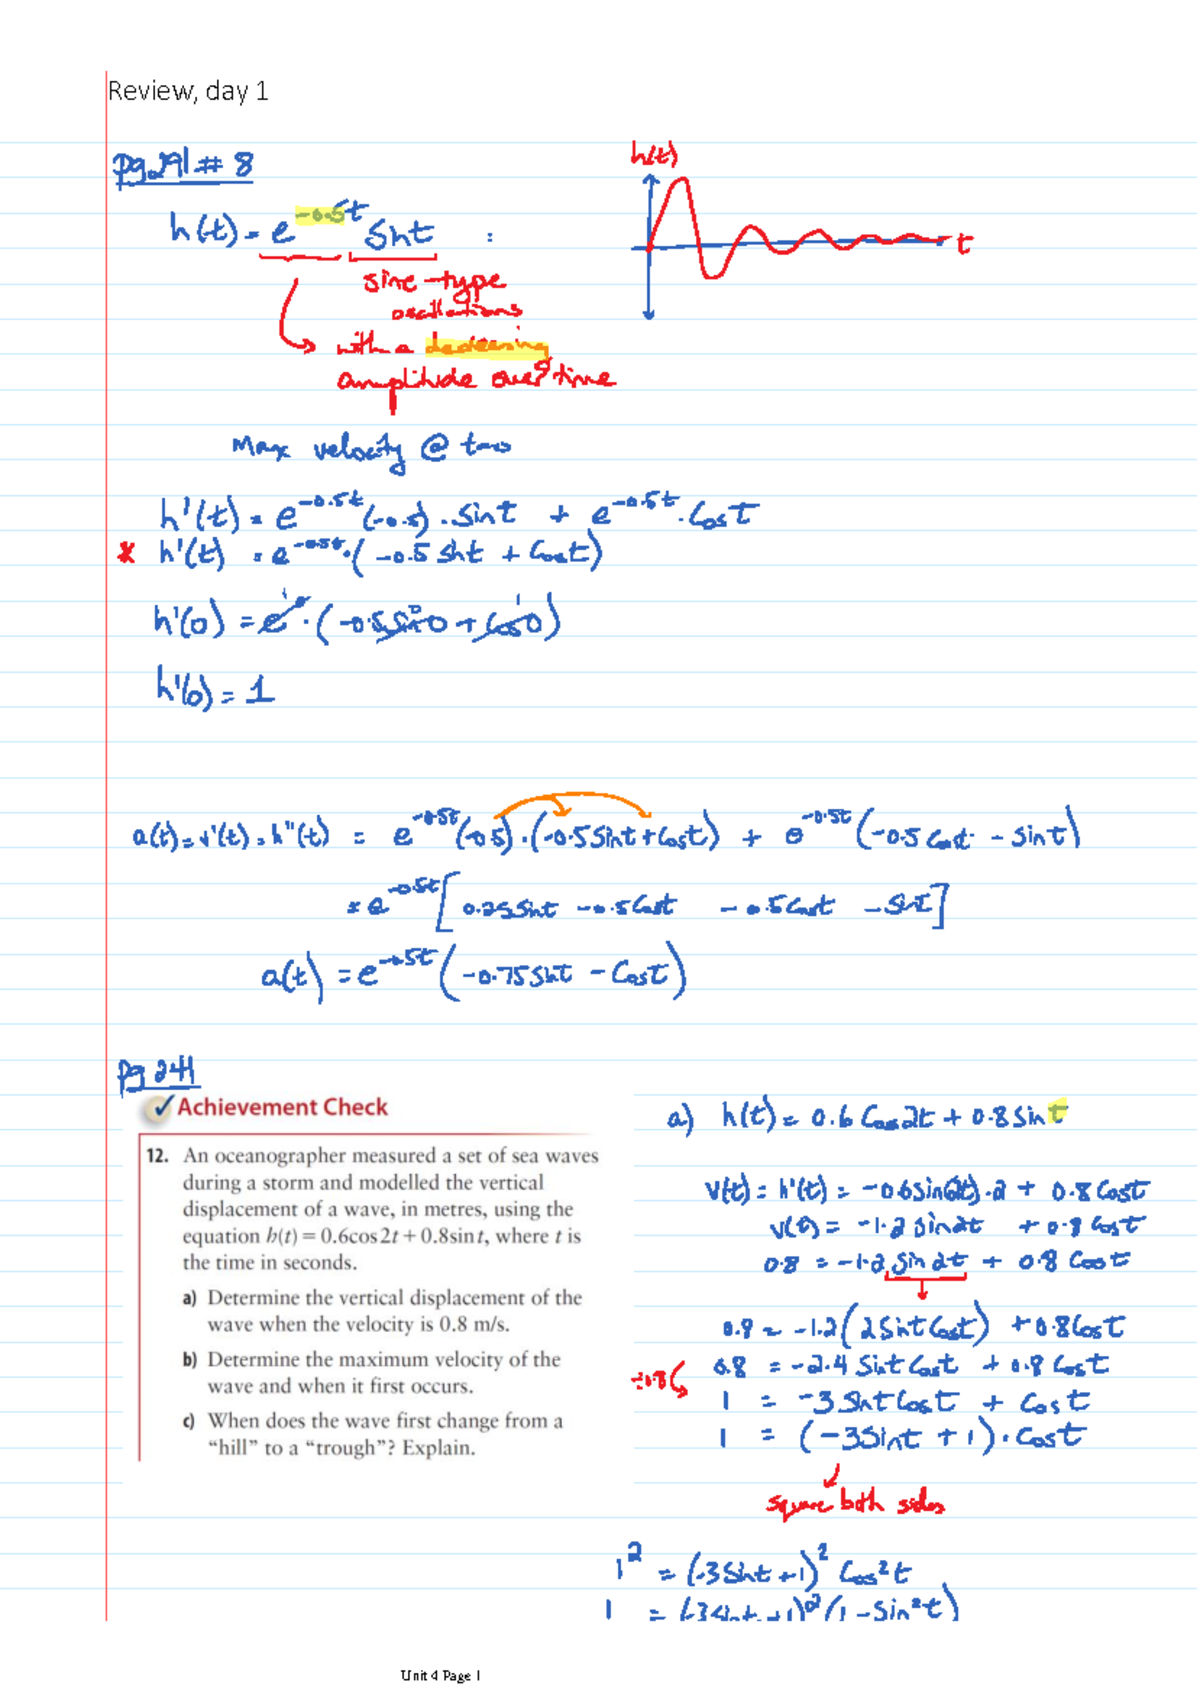 Review, day 1
pg.291 # 8
h(t)
h(t) = e^-0.5t sint :
t
sine-type
oscillations
with a decreasing
amplitude over time
Max velocity @ t=0
h'(t) = e^-0.5t (-0.5) · sint + e^-0.5t · cost
* h'(t) = e^-0.5t · (-0.5 sint + cost)
h'(0) = e^0 · (-0.5 sin0 + cos0)
h'(0) = 1
a(t) = v'(t) = h"(t) = e^-0.5t (-0.5) · (-0.5 sint + cost) + e^-0.5t (-0.5 cost - sint)
= e^-0.5t [0.25 sint - 0.5 cost - 0.5 cost - sint]
a(t) = e^-0.5t (-0.75 sint - cost)
pg 241
✓ Achievement Check
12. An oceanographer measured a set of sea waves
during a storm and modelled the vertical
displacement of a wave, in metres, using the
equation h(t) = 0.6cos 2t + 0.8sin t, where t is
the time in seconds.
a) Determine the vertical displacement of the
wave when the velocity is 0.8 m/s.
b) Determine the maximum velocity of the
wave and when it first occurs.
c) When does the wave first change from a
“hill” to a “trough”? Explain.
a) h(t) = 0.6 cos2t + 0.8 sint
v(t) = h'(t) = -0.6 sin(2t) · 2 + 0.8 cost
v(t) = -1.2 sin2t + 0.8 cost
0.8 = -1.2 sin2t + 0.8 cost
0.8 = -1.2(2 sint cost) + 0.8 cost
0.8 = -2.4 sint cost + 0.8 cost
÷0.8
1 = -3 sint cost + cost
1 = (-3 sint + 1) · cost
square both sides
1^2 = (-3 sint + 1)^2 cos^2 t
1 = (-3 sint + 1)^2 (1 - sin^2 t)
Unit 4 Page 1